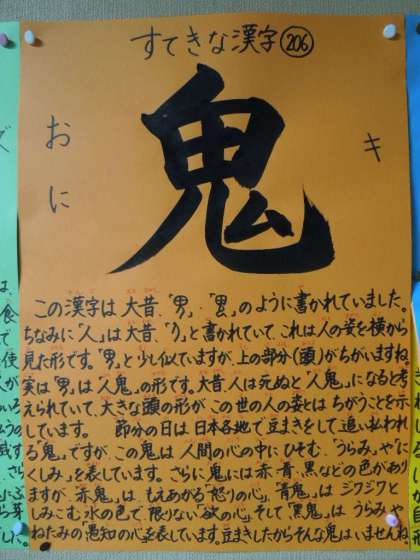 すてきな漢字 206
鬼
おに
キ
この漢字は大昔、「」「」のように書かれていました。
ちなみに「人」は大昔、「」と書かれていて、これは人の姿を横から
見た形です。「」と少し似ていますが、上の部分(頭)がちがいますね。
実は「」は「人鬼」の形です。大昔、人は死ぬと「人鬼」になると考
えられていて、大きな頭の形が、この世の人の姿とはちがうことを示
しています。 節分の日は日本各地で豆まきをして追い払われ
る「鬼」ですが、この鬼は人間の心の中にひそむ、「うらみ」や「に
くしみ」を表しています。さらに鬼には赤・青・黒などの色があり
ますが、「赤鬼」はもえあがる「怒りの心」、「青鬼」はジワジワと
しみこむ水の色で、限りない「欲の心」、そして「黒鬼」はうらみや
ねたみの「愚知の心」を表しています。豆まきしたからそんな鬼はいませんね。